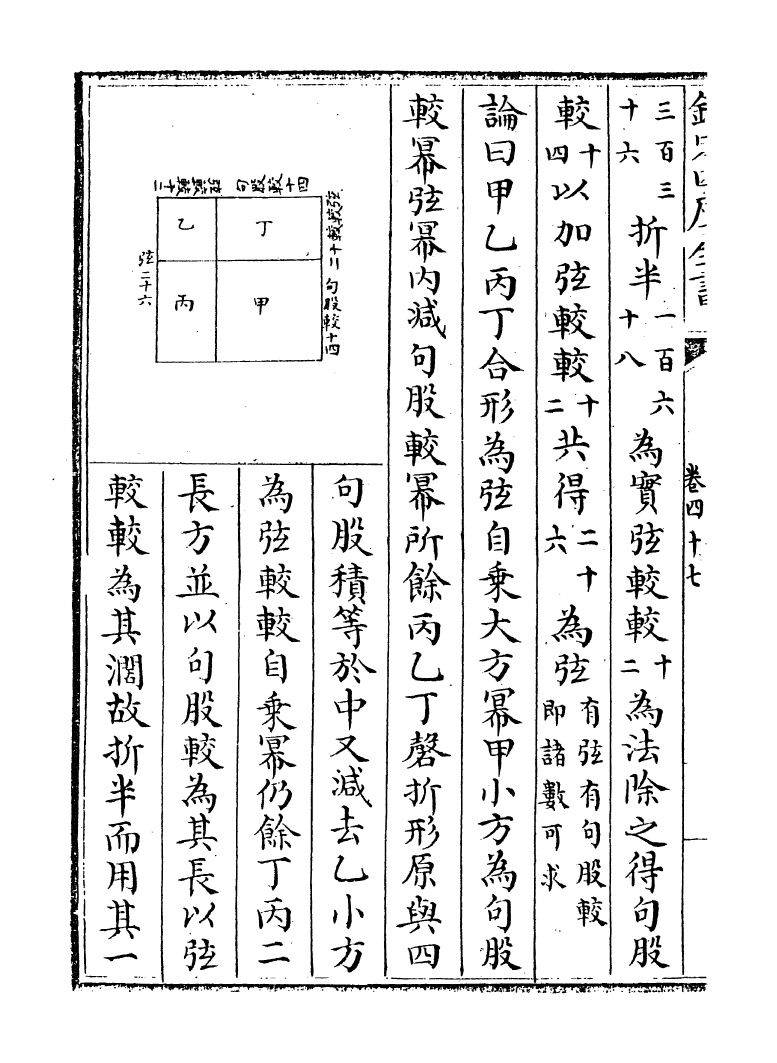 欽定四庫全書
卷四十七
三百三十六折半一百六十八為實弦較較十二為法除之得句股
較十四以加弦較較十二共得二十六為弦有弦有句股較即諸數可求
論曰甲乙丙丁合形為弦自乗大方冪甲小方為句股
較冪弦冪内減句股較冪所餘丙乙丁磬折形原與四
句股積等於中又減去乙小方
為弦較較自乗冪仍餘丁丙二
長方並以句股較為其長以弦
較較為其濶故折半而用其一
弦較較十二
句股較十四
弦較較十二
句股較十四
弦二十六
乙
丁
丙
甲